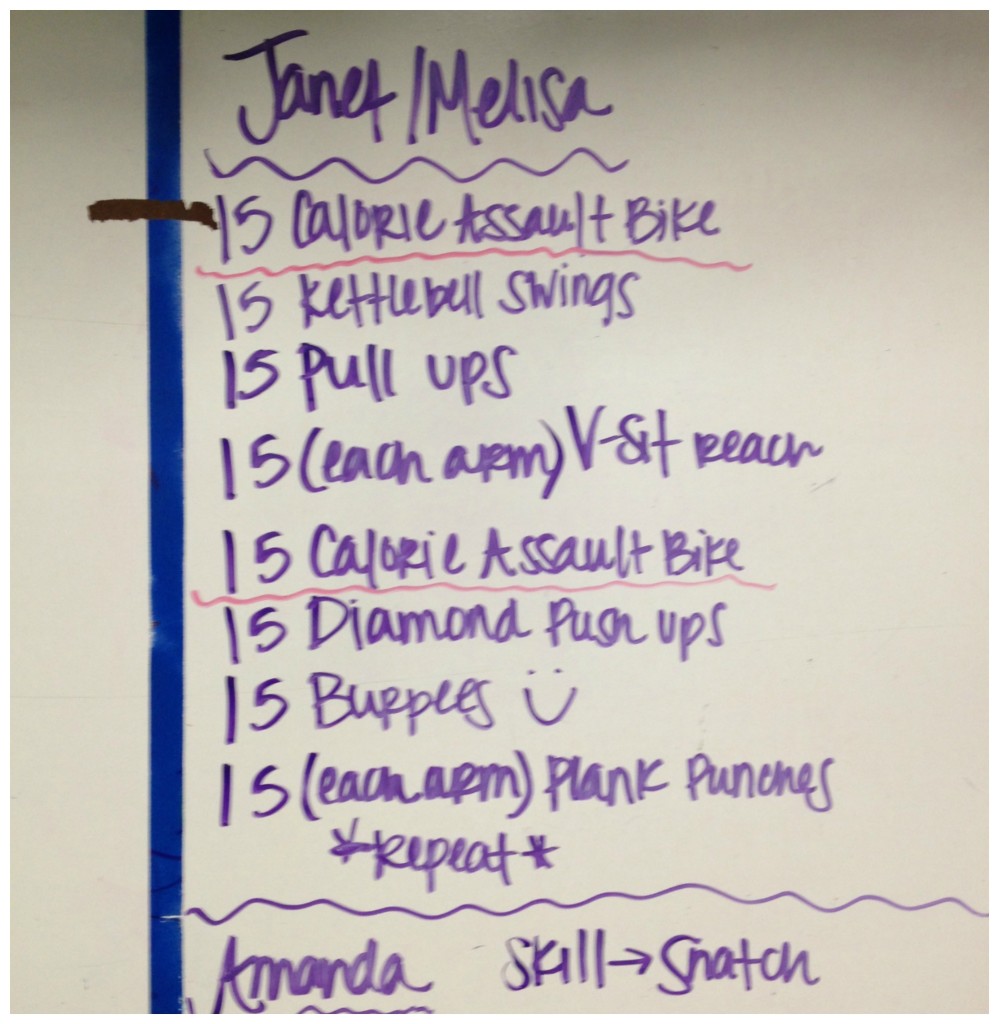 Janet/Melisa
15 Calorie Assault Bike
15 Kettlebell Swings
15 Pull ups
15 (each arm) V-Sit Reach
15 Calorie Assault Bike
15 Diamond Push ups
15 Burpees Ü
15 (each arm) Plank Punches
*Repeat*
Amanda Skill → Snatch